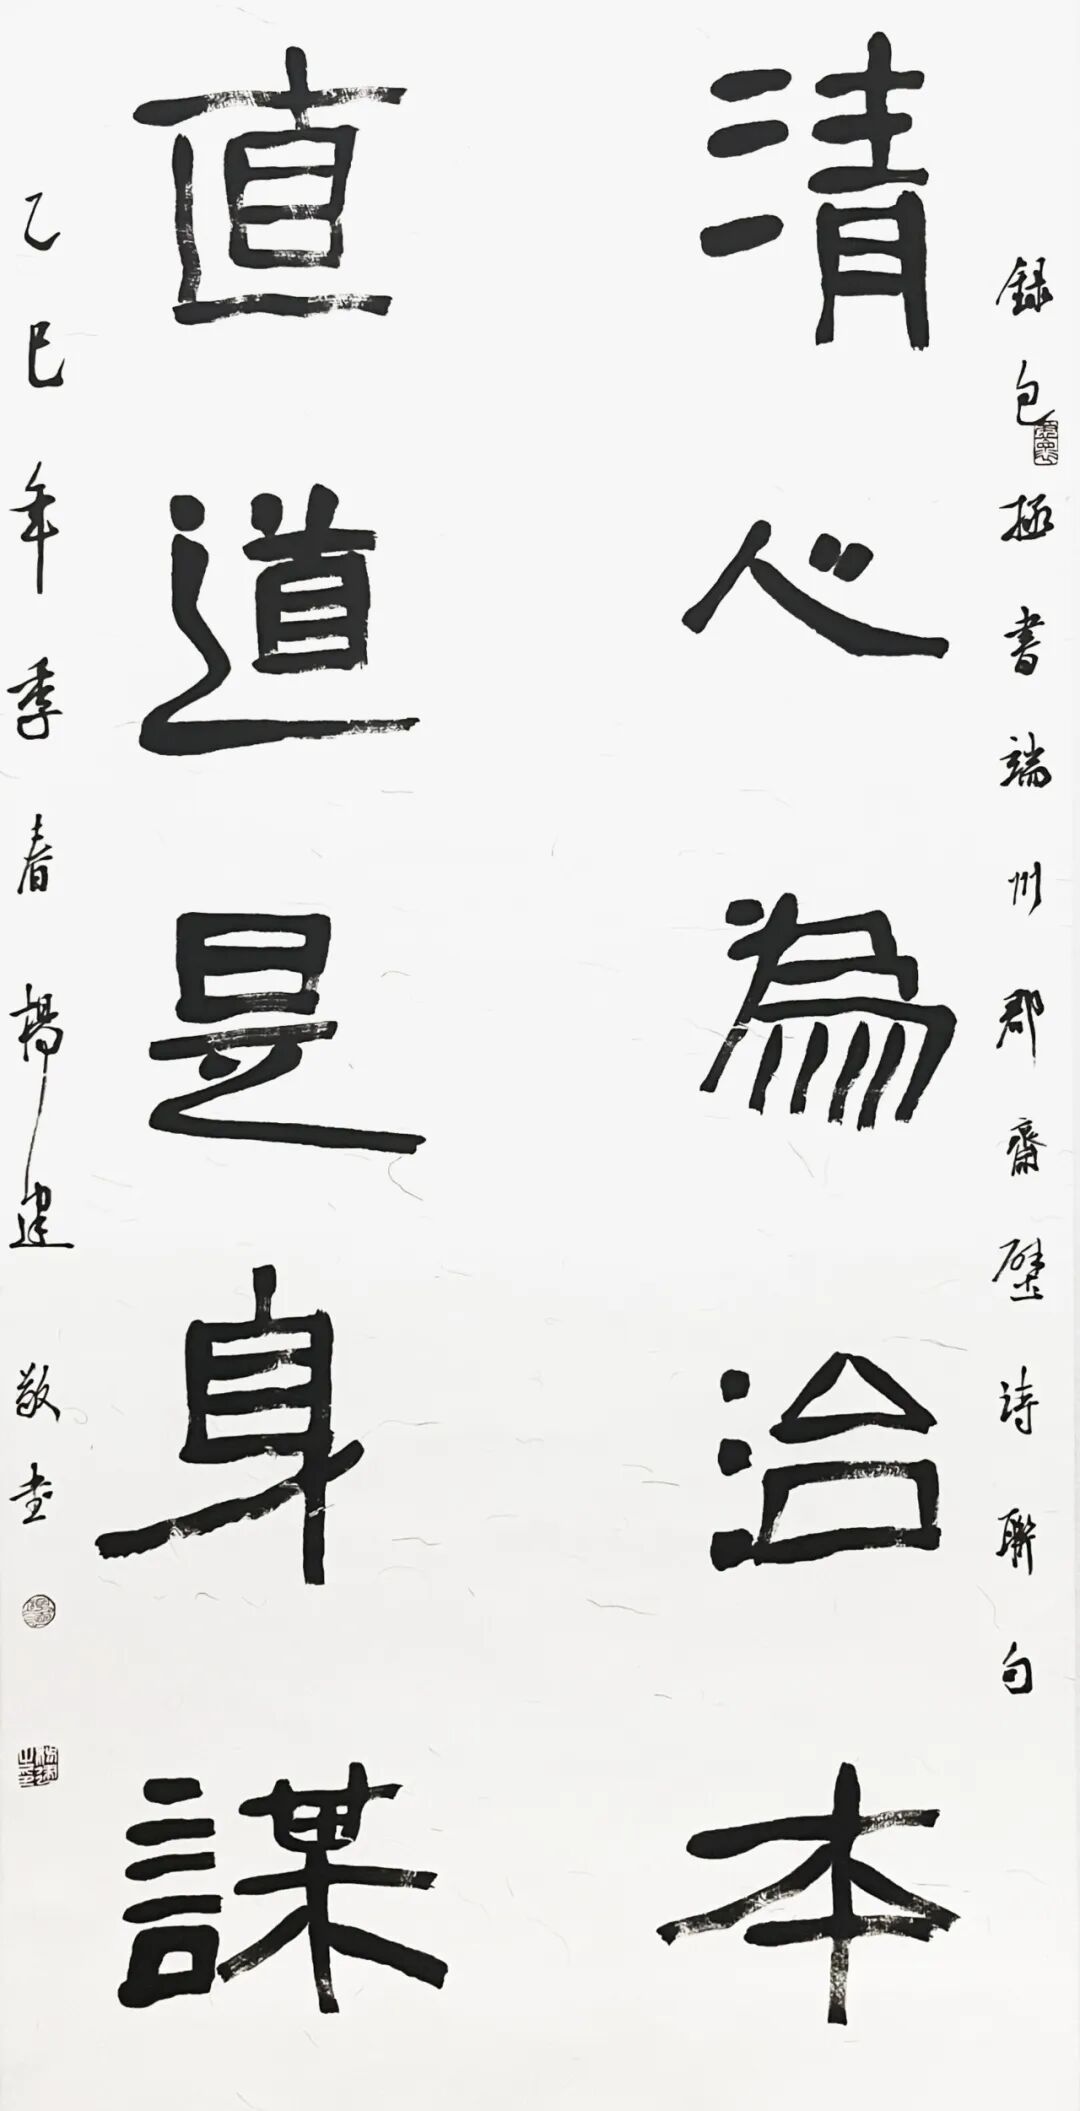 錄包拯書端州郡齋壁詩聯句
清心為治本
直道是身謀
乙巳年季春楊建敬書